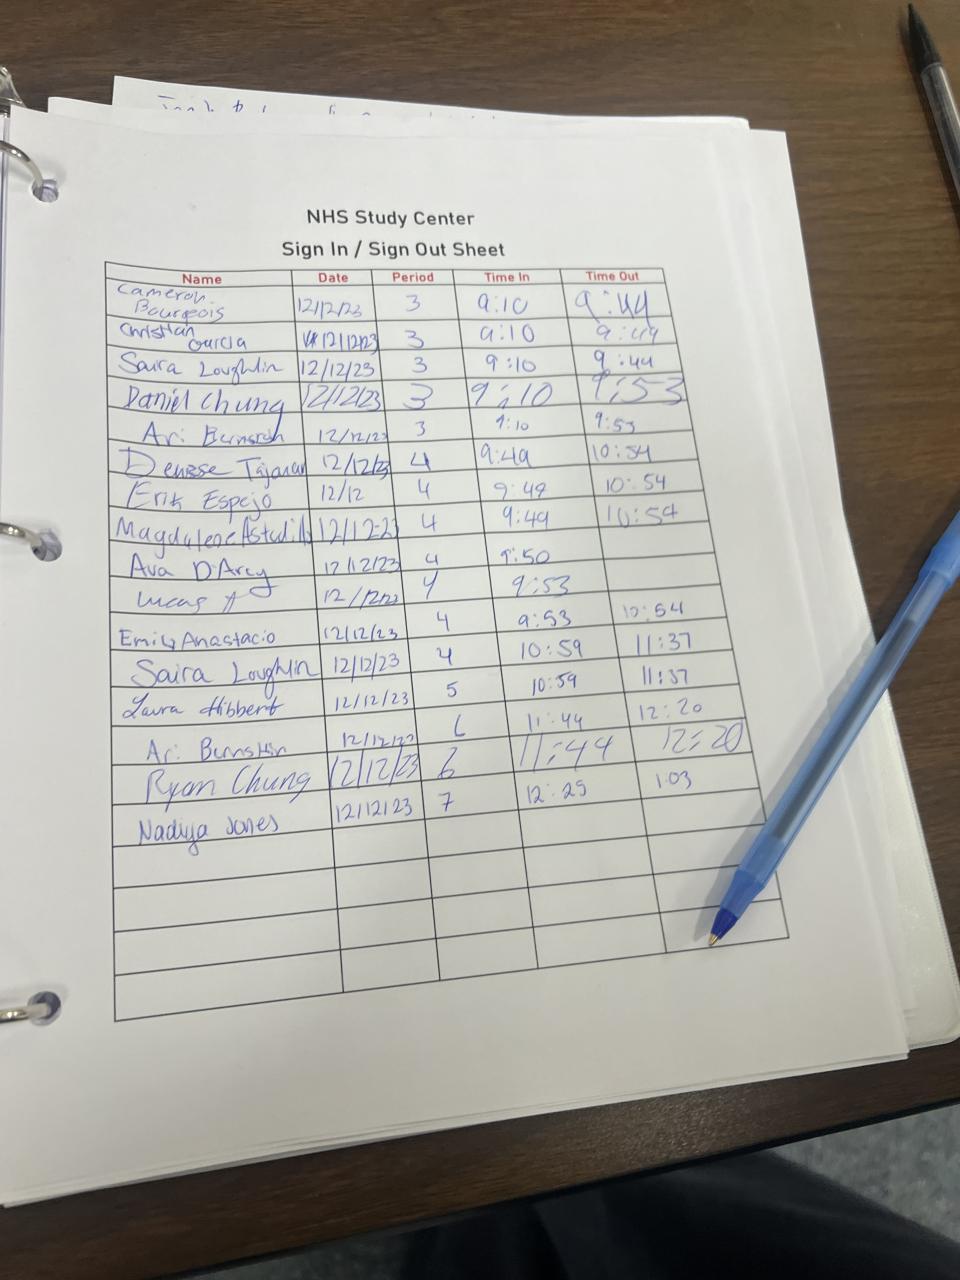 NHS Study Center
Sign In / Sign Out Sheet
Name Date Period Time In Time Out
Cameron Bourgeois 12/12/23 3 9:10 9:44
Christian Garcia 12/12/23 3 9:10 9:44
Saira Loughlin 12/12/23 3 9:10 9:44
Daniel Chung 12/12/23 3 9:10 9:53
Ari Bernstein 12/12/23 3 9:10 9:53
Denisse 12/12/23 4 9:49 10:54
Erik Espejo 12/12 4 9:49 10:54
Magdalene 12/12-23 4 9:49 10:54
Ava D'Arcy 12/12/23 4 9:50
Lucas A 12/12/23 4 9:53
Emily Anastacio 12/12/23 4 9:53 10:54
Saira Loughlin 12/12/23 4 10:59 11:37
Laura Hibbert 12/12/23 5 10:59 11:37
Ari Bernstein 12/12/23 6 11:44 12:20
Ryan Chung 12/12/23 6 11:44 12:20
Nadiya Jones 12/12/23 7 12:25 1:03